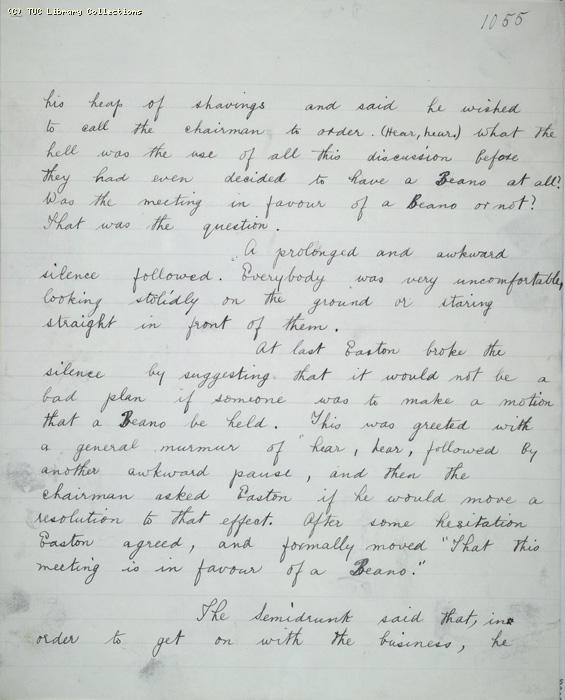 (C) TUC Library Collections
1055
his heap of shavings and said he wished
to call the chairman to order. (Hear, hear.) What the
hell was the use of all this discussion before
they had even decided to have a Beano at all?
Was the meeting in favour of a Beano or not?
That was the question.
A prolonged and awkward
silence followed. Everybody was very uncomfortable,
looking stolidly on the ground or staring
straight in front of them.
At last Easton broke the
silence by suggesting that it would not be a
bad plan if someone was to make a motion
that a Beano be held. This was greeted with
a general murmur of "hear, hear, followed by
another awkward pause, and then the
chairman asked Easton if he would move a
resolution to that effect. After some hesitation
Easton agreed, and formally moved "That this
meeting is in favour of a Beano."
The Semidrunk said that, in
order to get on with the business, he